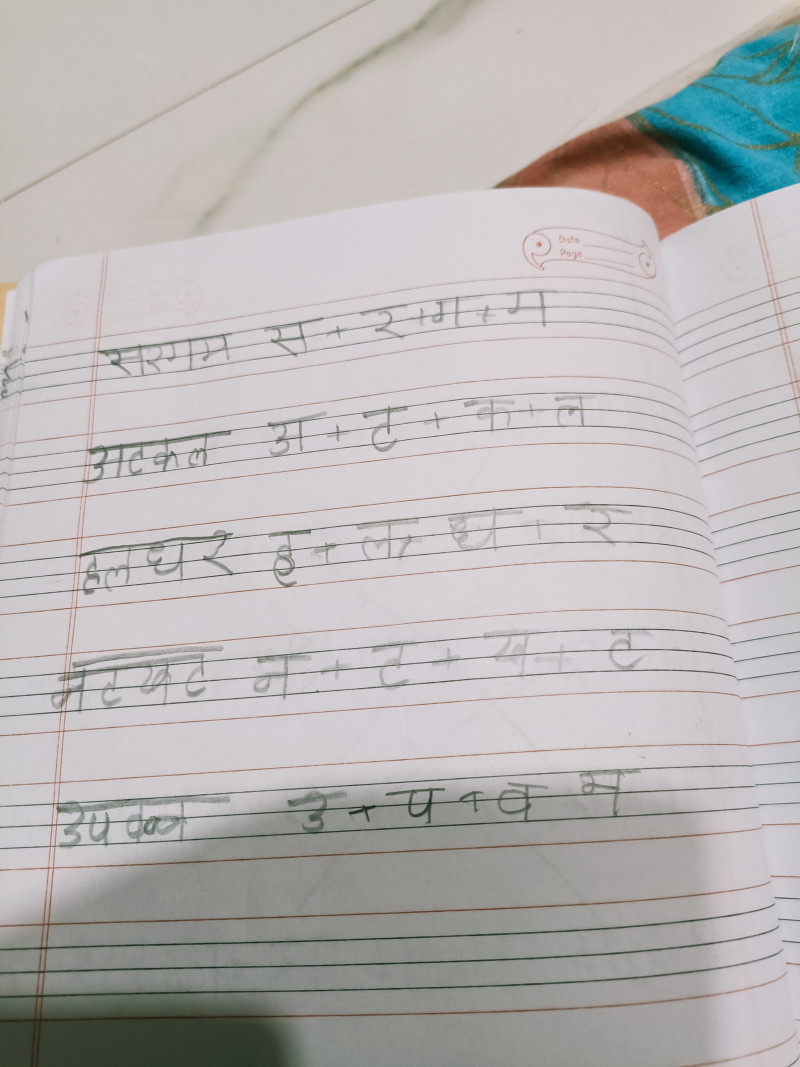 Date
Page
सरगम स + र + ग + म
अटकल अ + ट + क + ल
हलधर ह + ल + ध + र
नटखट न + ट + ख + ट
उ + प + व न